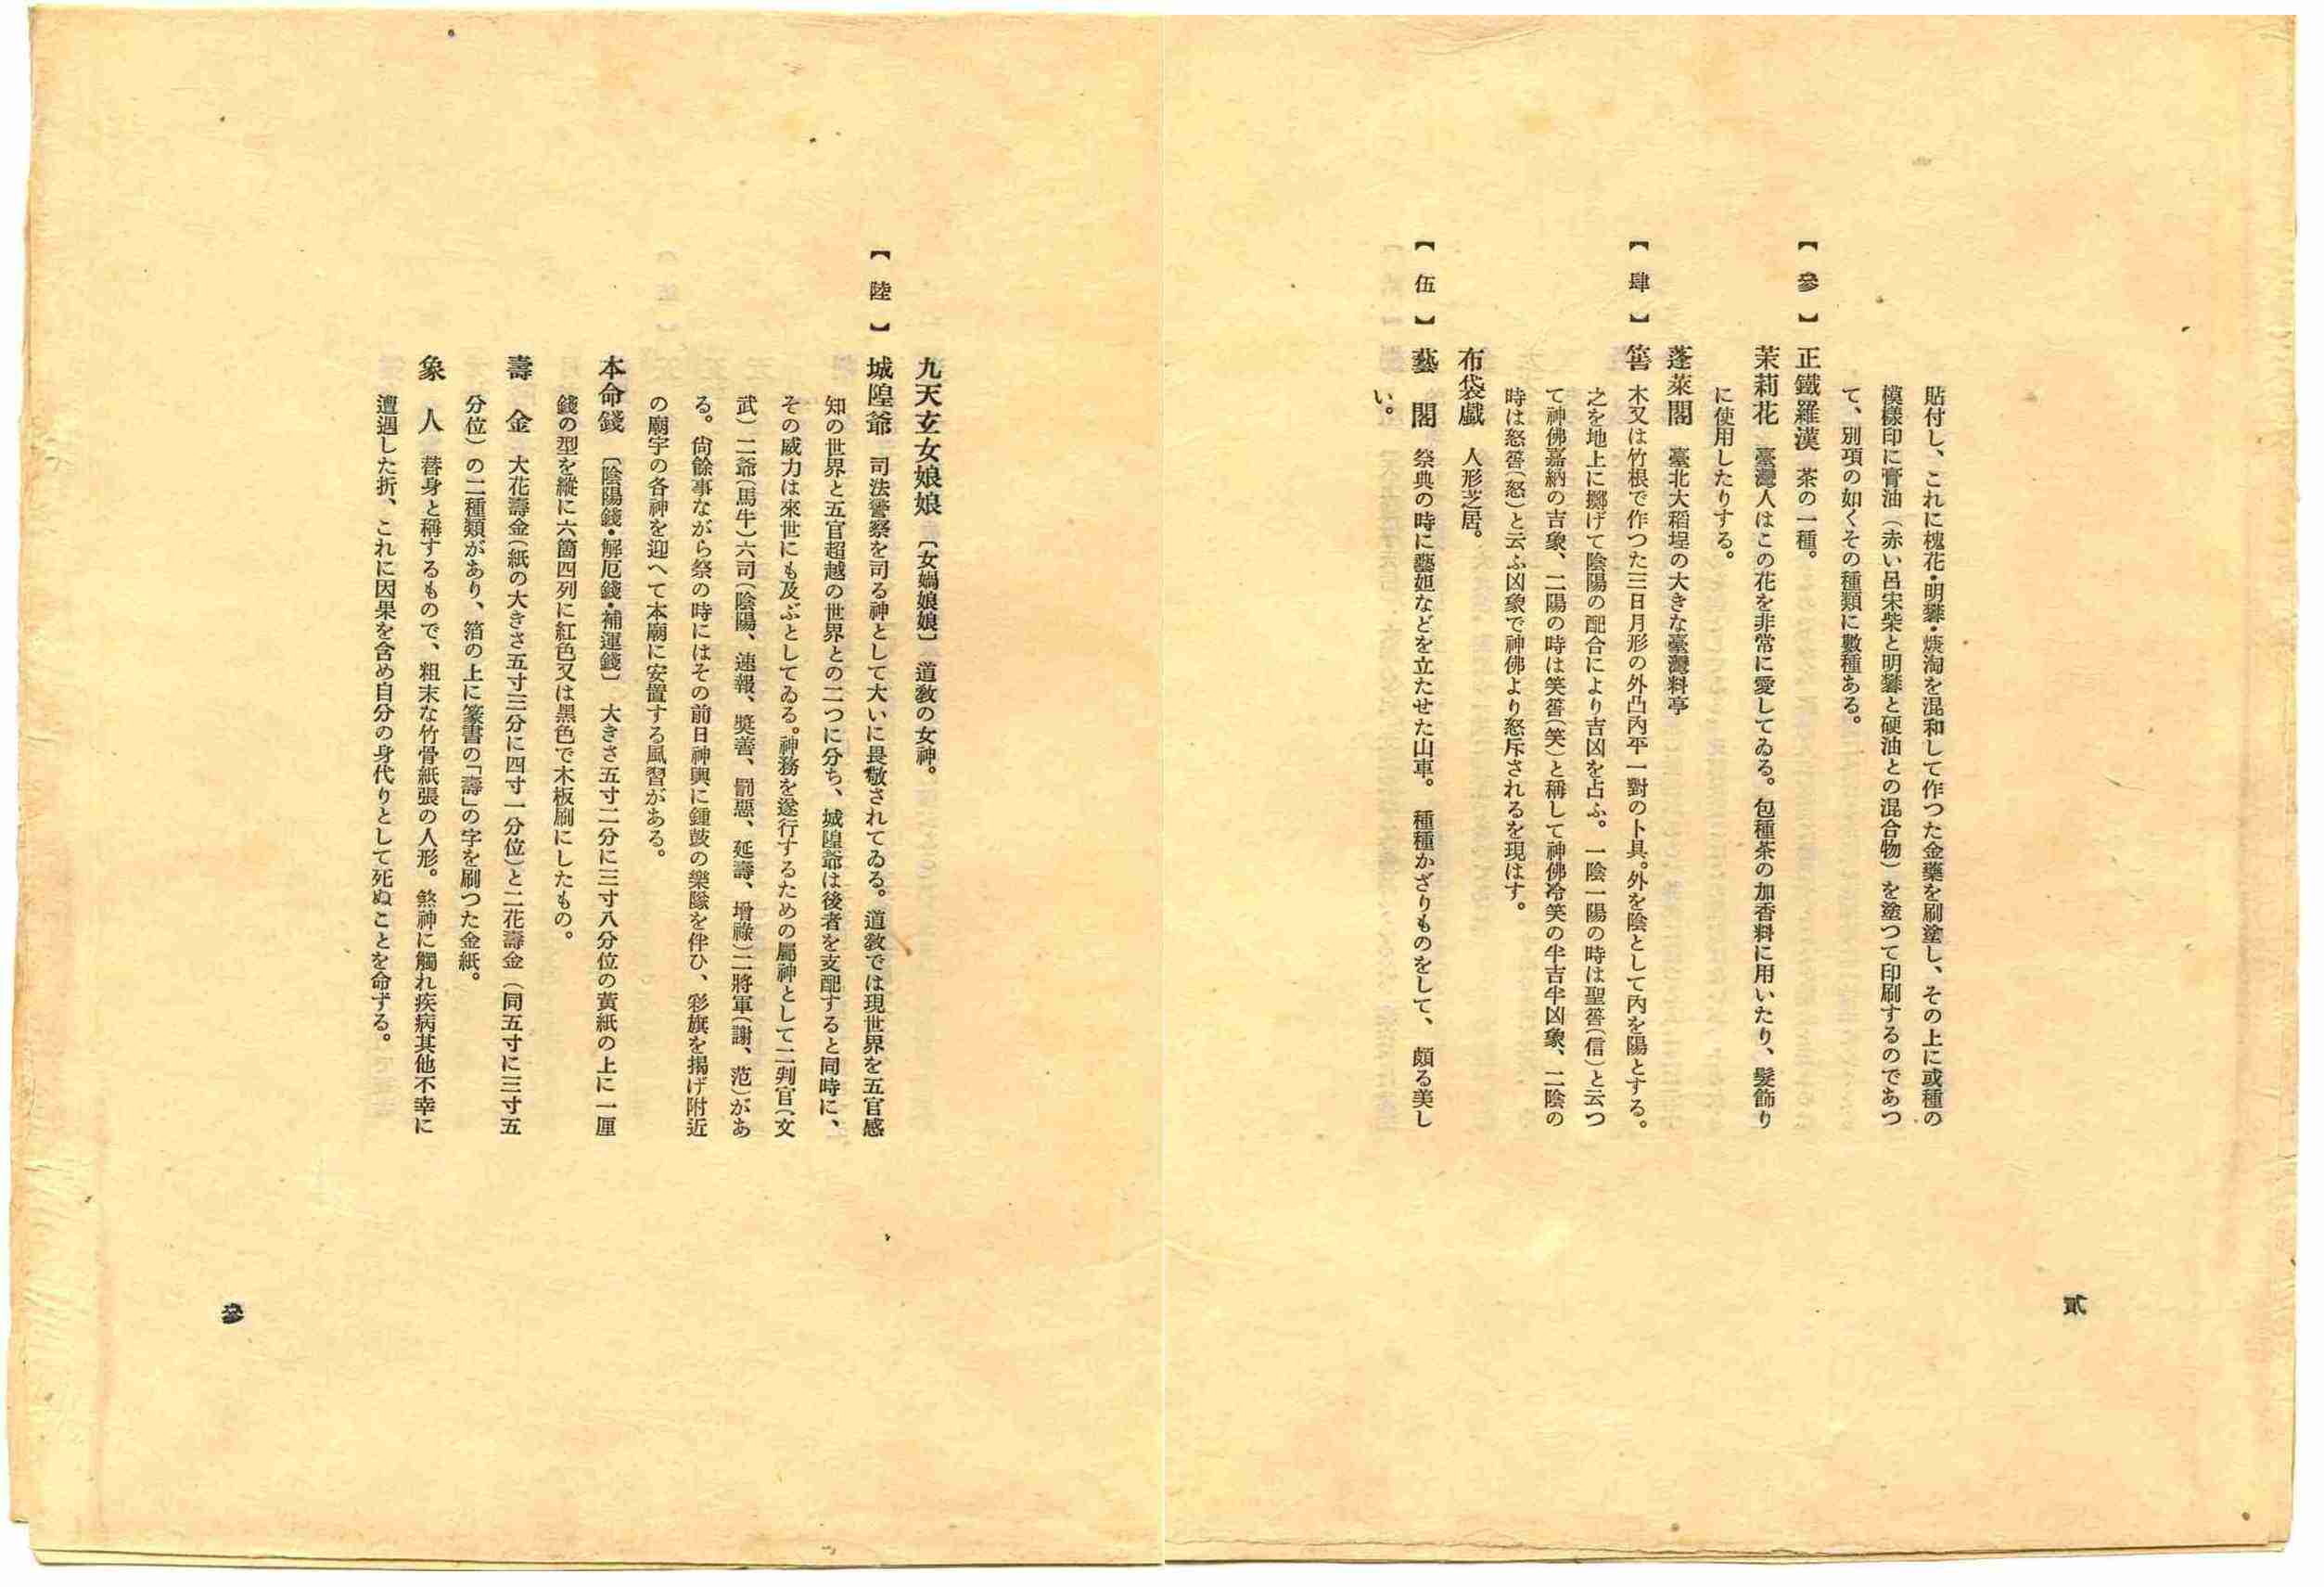 貼付し、これに槐花・明礬・燒淘を混和して作つた金藥を刷塗し、その上に或種の
模樣印に膏油（赤い呂宋柴と明礬と硬油との混合物）を塗つて印刷するのであつ
て、別項の如くその種類に數種ある。
【參】正鐵羅漢 茶の一種。
茉莉花 臺灣人はこの花を非常に愛してゐる。包種茶の加香料に用いたり、髮飾り
に使用したりする。
蓬萊閣 臺北大稻埕の大きな臺灣料亭
【肆】筶 木又は竹根で作つた三日月形の外凸內平一對の卜具。外を陰として內を陽とする。
之を地上に擲げて陰陽の配合により吉凶を占ふ。一陰一陽の時は聖筶（信）と云つ
て神佛嘉納の吉象、二陽の時は笑筶（笑）と稱して神佛冷笑の半吉半凶象、二陰の
時は怒筶（怒）と云ふ凶象で神佛より怒斥されるを現はす。
布袋戲 人形芝居。
【伍】藝閣 祭典の時に藝妲などを立たせた山車。種種かざりものをして、頗る美し
い。
貳
九天玄女娘娘〔女媧娘娘〕道敎の女神。
【陸】城隍爺 司法警察を司る神として大いに畏敬されてゐる。道敎では現世界を五官感
知の世界と五官超越の世界との二つに分ち、城隍爺は後者を支配すると同時に、
その威力は來世にも及ぶとしてゐる。神務を遂行するための屬神として二判官（文
武）二爺（馬牛）六司（陰陽、速報、奬善、罰惡、延壽、增祿）二將軍（謝、范）があ
る。尙餘事ながら祭の時にはその前日神輿に鍾鼓の樂隊を伴ひ、彩旗を揭げ附近
の廟宇の各神を迎へて本廟に安置する風習がある。
本命錢〔陰陽錢・解厄錢・補運錢〕大きさ五寸二分に三寸八分位の黃紙の上に一厘
錢の型を縱に六箇四列に紅色又は黑色で木板刷にしたもの。
壽金 大花壽金（紙の大きさ五寸三分に四寸一分位）と二花壽金（同五寸に三寸五
分位）の二種類があり、箔の上に篆書の「壽」の字を刷つた金紙。
象人 替身と稱するもので、粗末な竹骨紙張の人形。煞神に觸れ疾病其他不幸に
遭遇した折、これに因果を含め自分の身代りとして死ぬことを命ずる。
參